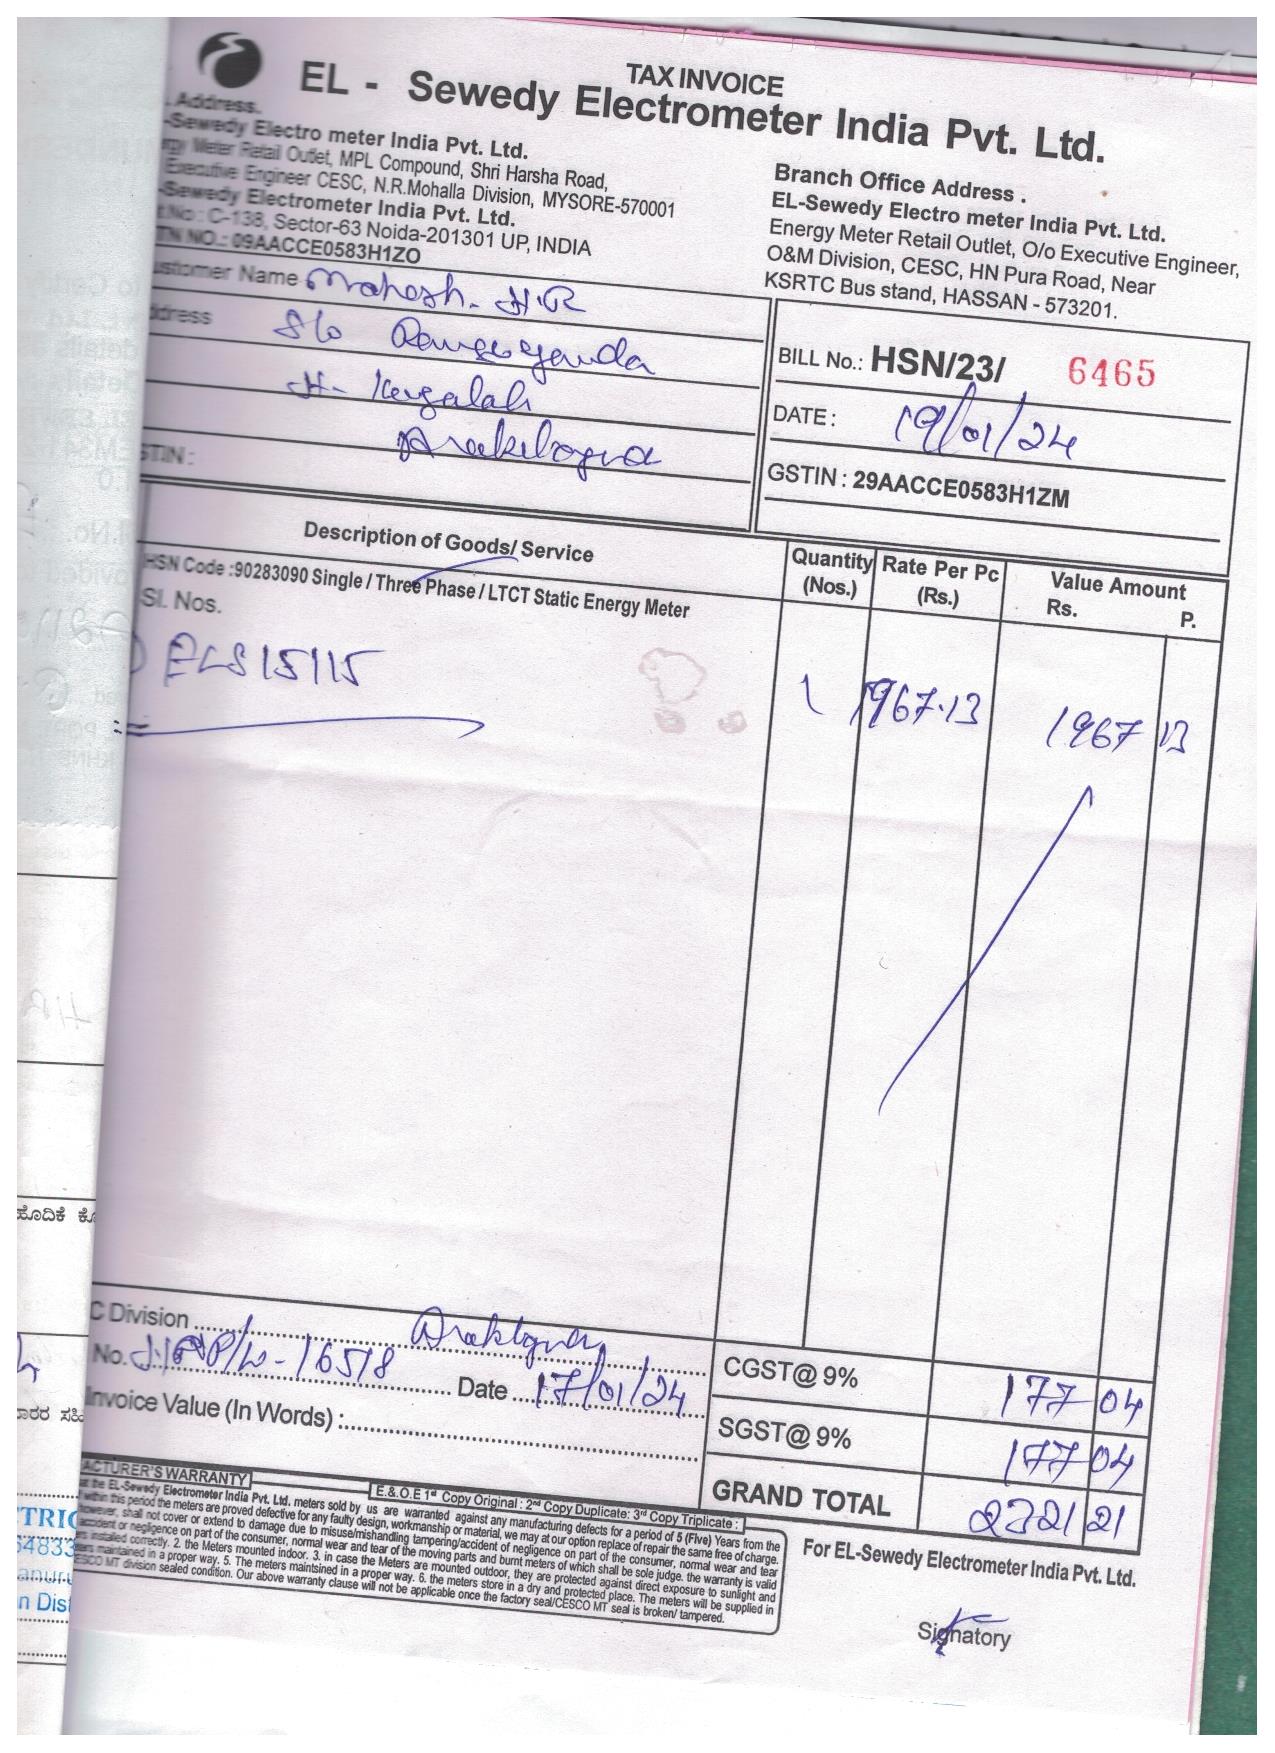 TAX INVOICE
EL - Sewedy Electrometer India Pvt. Ltd.
Address.
-Sewedy Electro meter India Pvt. Ltd.
Meter Retail Outlet, MPL Compound, Shri Harsha Road,
Executive Engineer CESC, N.R.Mohalla Division, MYSORE-570001
-Sewedy Electrometer India Pvt. Ltd.
C-138, Sector-63 Noida-201301 UP, INDIA
NO.: 09AACCE0583H1ZO
Branch Office Address .
EL-Sewedy Electro meter India Pvt. Ltd.
Energy Meter Retail Outlet, O/o Executive Engineer,
O&M Division, CESC, HN Pura Road, Near
KSRTC Bus stand, HASSAN - 573201.
ustomer Name Mahesh. H.R
ddress S/o
H-
STIN :
BILL No.: HSN/23/ 6465
DATE : 19/01/24
GSTIN : 29AACCE0583H1ZM
Description of Goods/ Service
Quantity (Nos.)
Rate Per Pc (Rs.)
Value Amount
Rs. P.
HSN Code :90283090 Single / Three Phase / LTCT Static Energy Meter
Sl. Nos.
ELS15115 1 1967.13 1967 13
C Division
No. 16518 Date 17/01/24
Invoice Value (In Words) :
CGST@ 9% 177 04
SGST@ 9% 177 04
GRAND TOTAL 2321 21
ACTURER'S WARRANTY
E.& O.E 1st Copy Original : 2nd Copy Duplicate: 3rd Copy Triplicate :
the EL-Sewedy Electrometer India Pvt. Ltd. meters sold by us are warranted against any manufacturing defects for a period of 5 (Five) Years from the
within this period the meters are proved defective for any faulty design, workmanship or material, we may at our option replace of repair the same free of charge.
however, shall not cover or extend to damage due to misuse/mishandling tampering/accident of negligence on part of the consumer, normal wear and tear
accident or negligence on part of the consumer, normal wear and tear of the moving parts and burnt meters of which shall be sole judge. the warranty is valid
installed correctly. 2. the Meters mounted indoor. 3. in case the Meters are mounted outdoor, they are protected against direct exposure to sunlight and
maintained in a proper way. 5. The meters maintsined in a proper way. 6. the meters store in a dry and protected place. The meters will be supplied in
CESCO MT division sealed condition. Our above warranty clause will not be applicable once the factory seal/CESCO MT seal is broken/ tampered.
For EL-Sewedy Electrometer India Pvt. Ltd.
Signatory